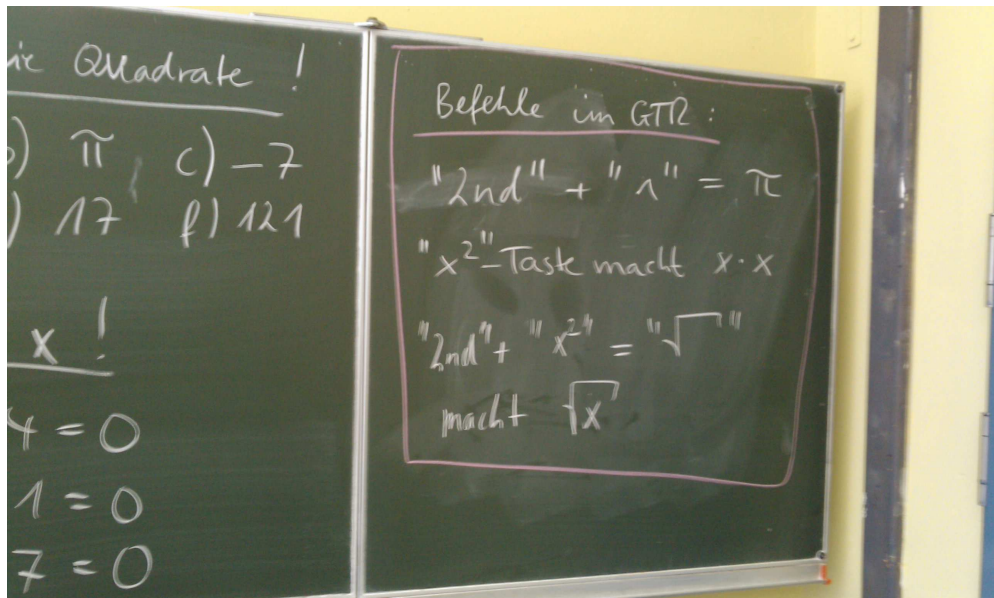 Quadrate !
π c) -7
17 f) 121
x !
4 = 0
1 = 0
7 = 0
Befehle im GTR :
"2nd" + "1" = π
"x²"-Taste macht x·x
"2nd" + "x²" = "√ "
macht √x